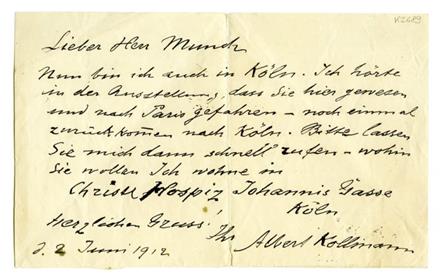 K2689
Lieber Herr Munch
Nun bin ich auch in Köln. Ich hörte
in der Ausstellung, dass Sie hier gewesen
und nach Paris gefahren – noch einmal
zurückkommen nach Köln. Bitte lassen
Sie mich dann schnell rufen – wohin
Sie wollen Ich wohne in
Christl Hospiz Johannis Gasse
Köln
Herzlichen Gruss!
Ihr
Albert Kollmann
d. 2 Juni 1912